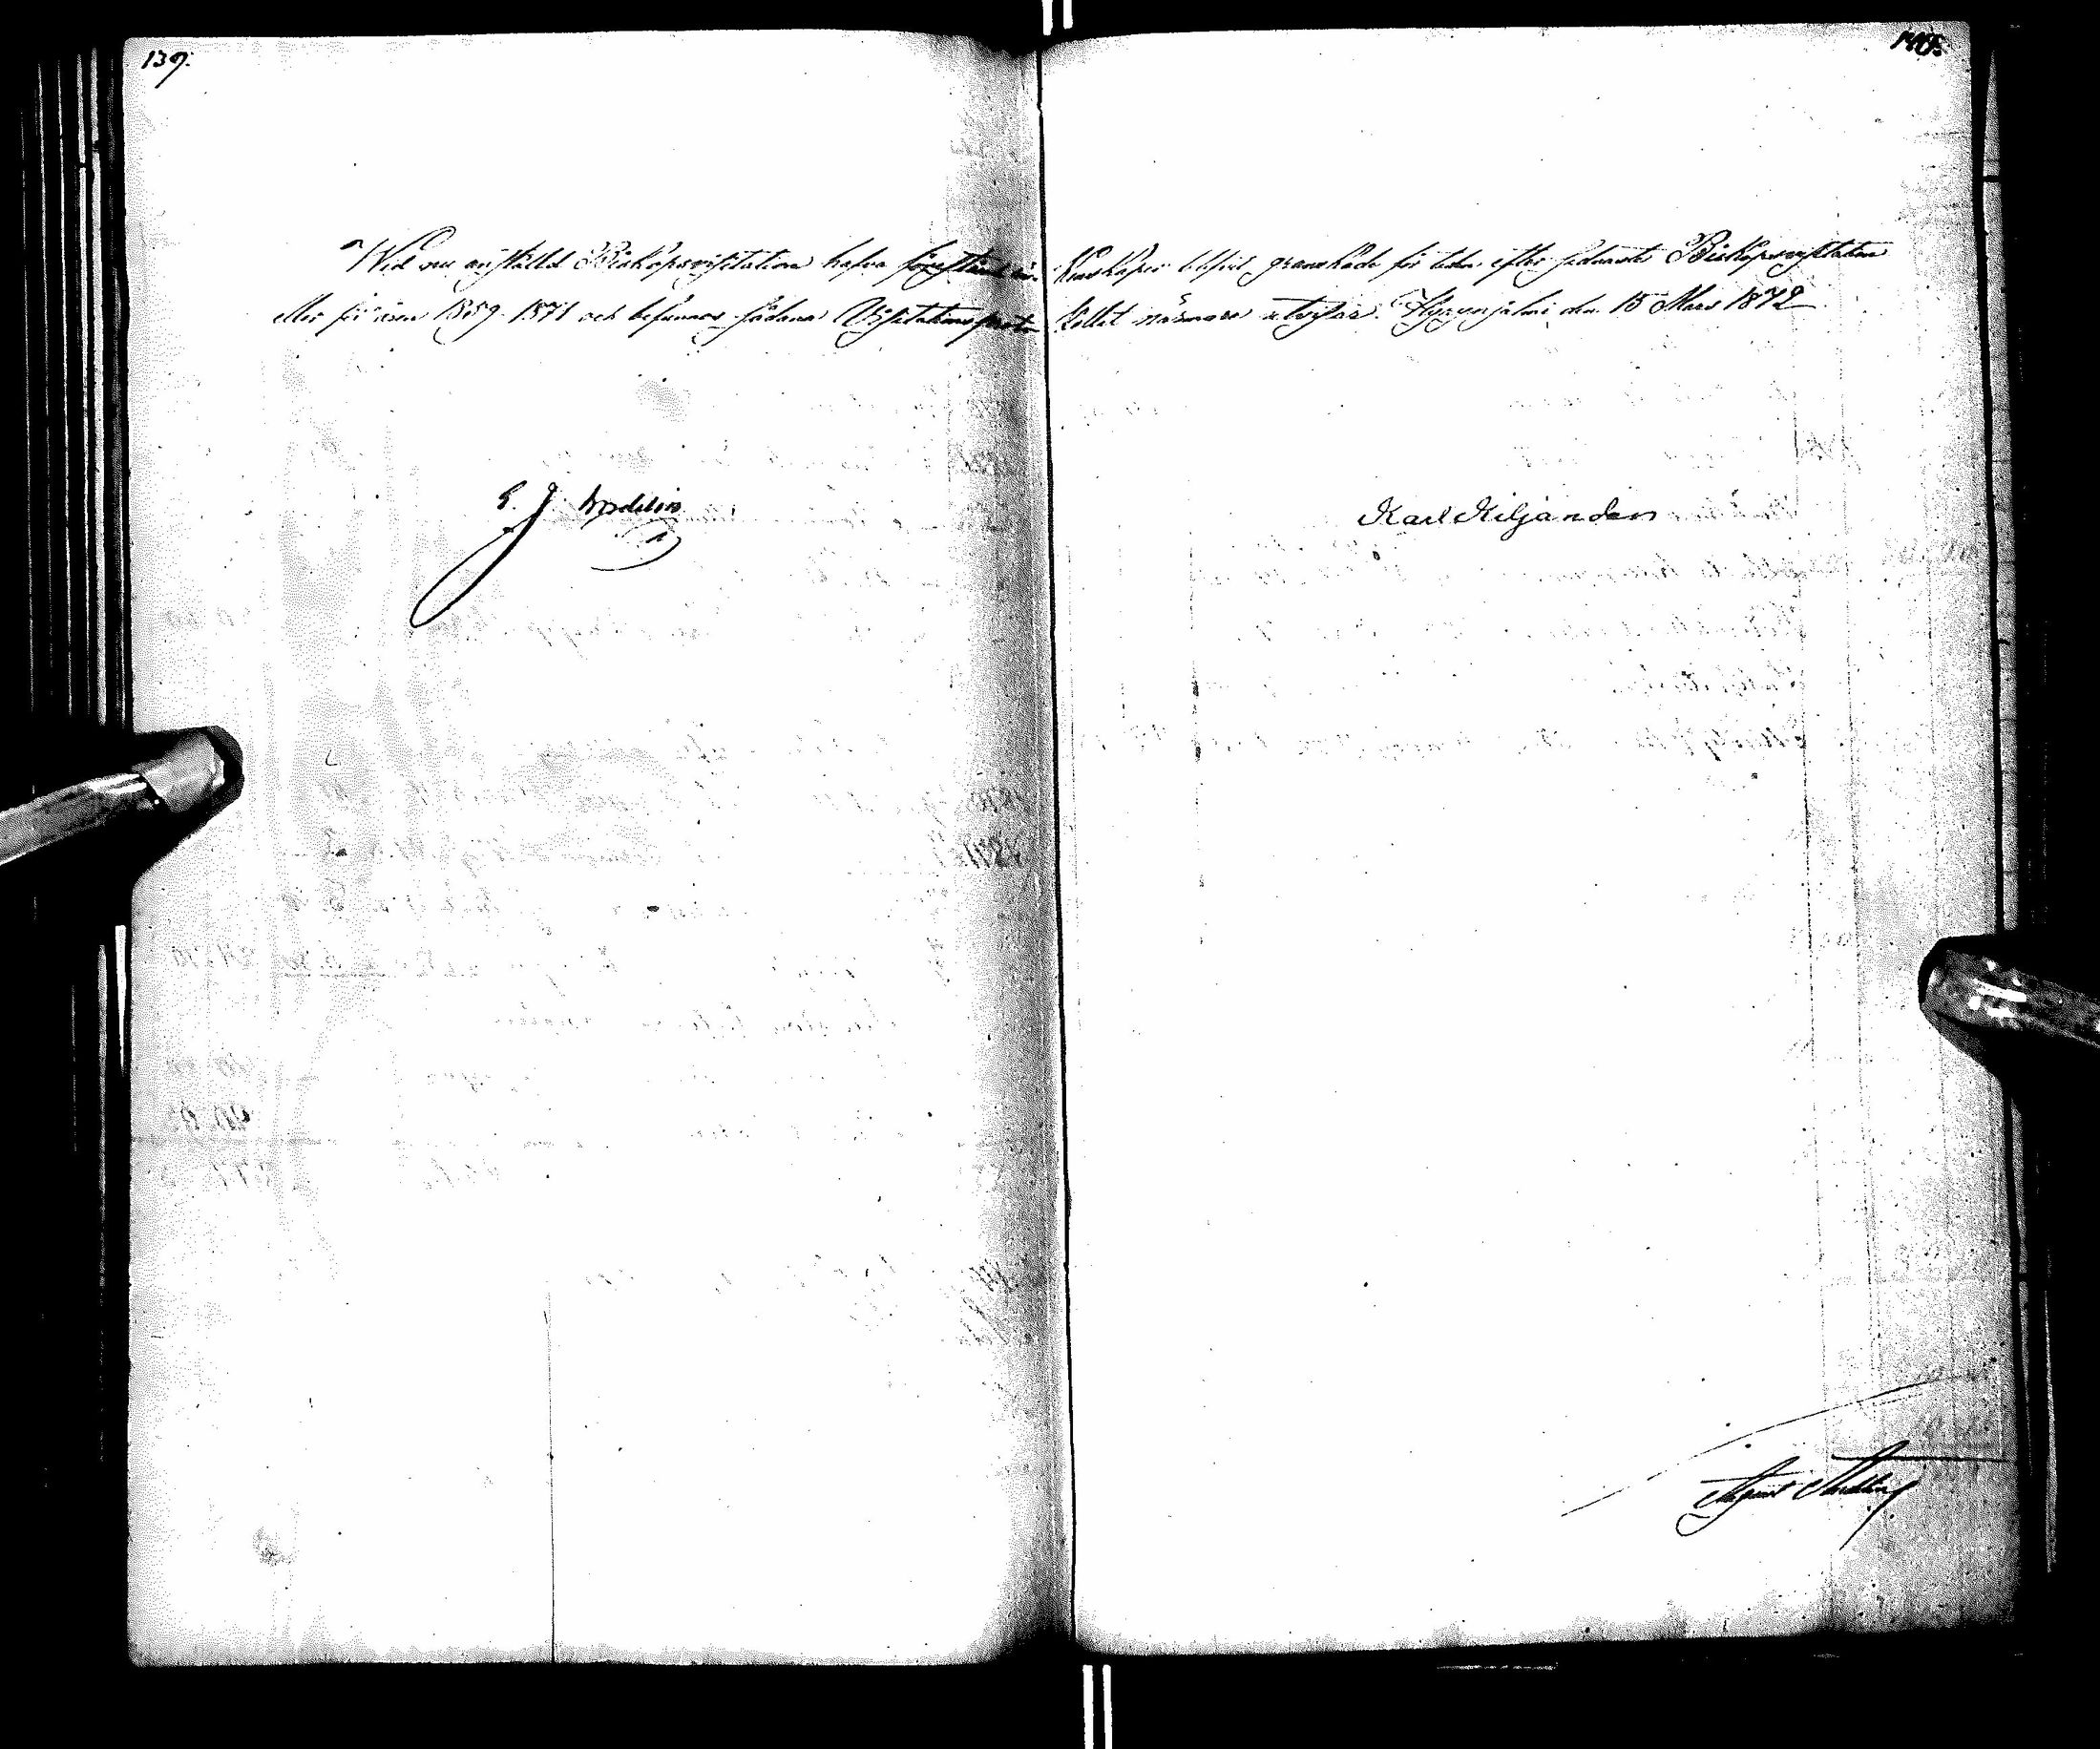 139.
Wid nu anställd Biskopsvisitation hafva föreståend rä- kenskaper blifvit granskade för tiden efter sednaste Biskopsvisitation
eller för åren 1859-1871 och befunnos sådana Visitationsproto- kollet närmare utvisar. den 15 Mars 1872
Karl Kiljander
August